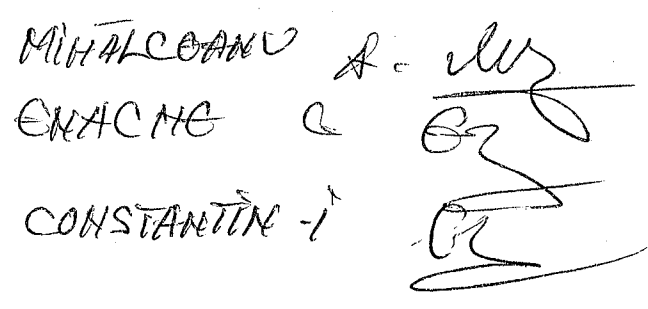 MIHALCEANU A.
ENACHE C
CONSTANTIN - I